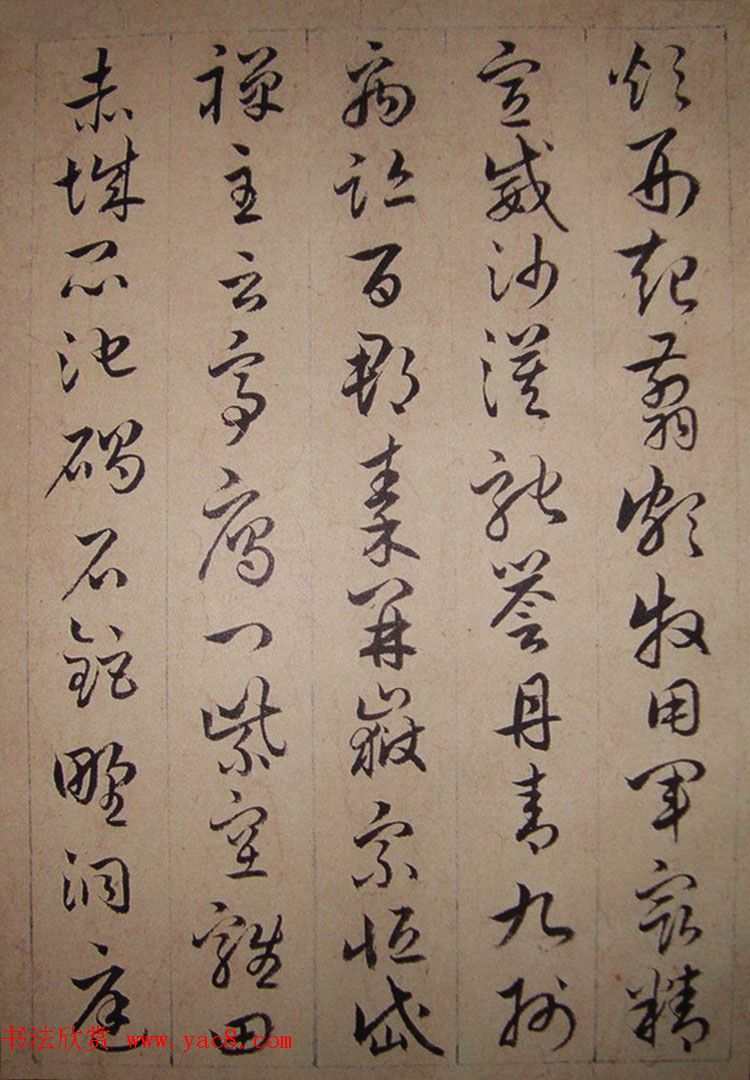 煩刑起翦頗牧用軍最精
宣威沙漠馳譽丹青九州
禹跡百郡秦并嶽宗恒岱
禪主云亭鴈門紫塞雞田
赤城昆池碣石鉅野洞庭
书法欣赏 www.yac8.com